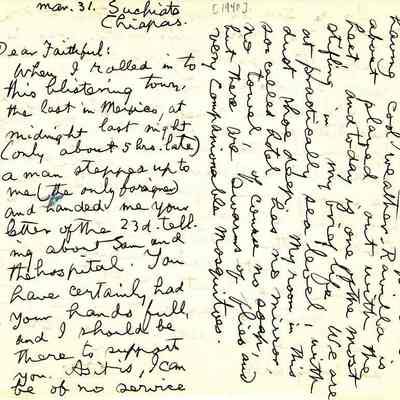 Mar. 31. Suchiate
Chiapas.
[1940].
Dear Faithful:
When I rolled in to
this blistering town,
the last in Mexico, at
midnight last night
(only about 5 hrs. late)
a man stepped up to
me (the only foreigner)
and handed me your
letter of the 23d. tell-
ing about Sam and
the hospital. You
have certainly had
your hands full,
and I should be
there to support
you. As it is, I can
be of no service
cool weather. Ravilla is
about played out with the
heat and today is one of the most
stifling in my bored life. We are
at practically sea level, with
dust shoe deep. My room in this
so called hotel has no mirror,
no towel, of course no soap,
but there are swarms of flies and
very companionable mosquitoes.